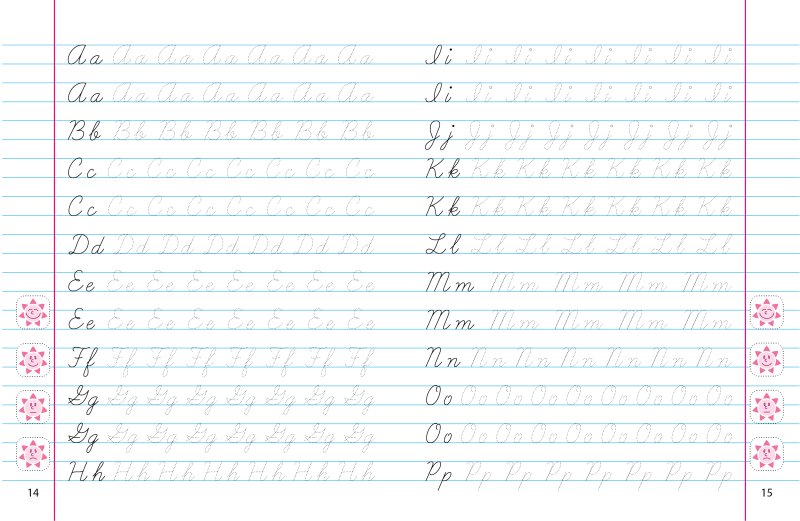 Aa Aa Aa Aa Aa Aa Aa
Aa Aa Aa Aa Aa Aa Aa
Bb Bb Bb Bb Bb Bb Bb
Cc Cc Cc Cc Cc Cc Cc Cc
Cc Cc Cc Cc Cc Cc Cc Cc
Dd Dd Dd Dd Dd Dd Dd
Ee Ee Ee Ee Ee Ee Ee Ee
Ee Ee Ee Ee Ee Ee Ee Ee
Ff Ff Ff Ff Ff Ff Ff Ff
Gg Gg Gg Gg Gg Gg Gg Gg
Gg Gg Gg Gg Gg Gg Gg Gg
Hh Hh Hh Hh Hh Hh Hh
14
Ii Ii Ii Ii Ii Ii Ii Ii
Ii Ii Ii Ii Ii Ii Ii Ii
Jj Jj Jj Jj Jj Jj Jj Jj
Kk Kk Kk Kk Kk Kk Kk
Kk Kk Kk Kk Kk Kk Kk
Ll Ll Ll Ll Ll Ll Ll
Mm Mm Mm Mm Mm
Mm Mm Mm Mm Mm
Nn Nn Nn Nn Nn Nn Nn
Oo Oo Oo Oo Oo Oo Oo Oo Oo
Oo Oo Oo Oo Oo Oo Oo Oo Oo
Pp Pp Pp Pp Pp Pp Pp Pp
15